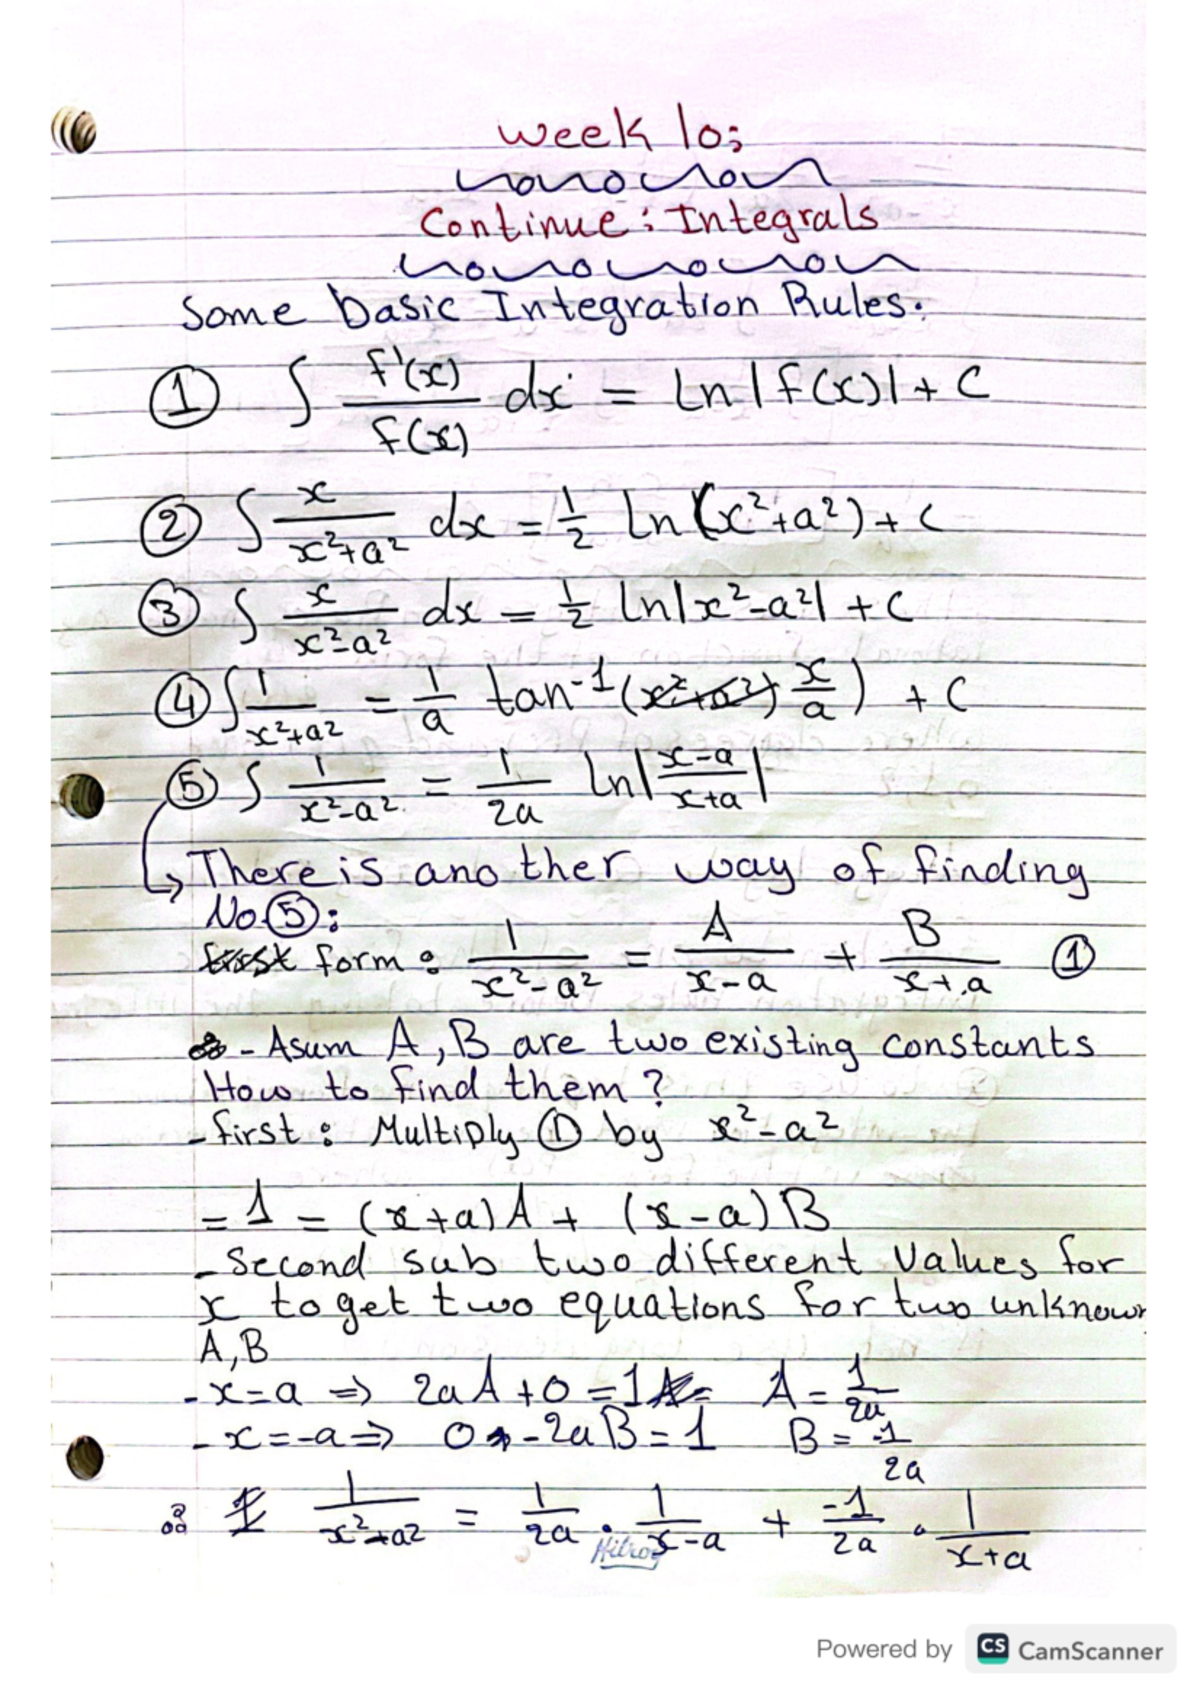 week 10;
Continue: Integrals
Some basic Integration Rules.
① ∫ f'(x)/f(x) dx = ln|f(x)| + C
② ∫ x/(x²+a²) dx = 1/2 ln(x²+a²) + C
③ ∫ x/(x²-a²) dx = 1/2 ln|x²-a²| + C
④ ∫ 1/(x²+a²) = 1/a tan⁻¹(x/a) + C
⑤ ∫ 1/(x²-a²) = 1/2a ln|(x-a)/(x+a)|
There is another way of finding
No.⑤:
form: 1/(x²-a²) = A/(x-a) + B/(x+a) ①
- Asum A, B are two existing constants
How to find them?
- first: Multiply ① by x²-a²
= 1 = (x+a)A + (x-a)B
- Second sub two different Values for
x to get two equations for two unknown
A, B
- x=a ⇒ 2aA+0=1 A = 1/2a
- x=-a ⇒ 0 -2aB=1 B = -1/2a
∴ 1/(x²-a²) = 1/2a · 1/(x-a) + -1/2a · 1/(x+a)
Hilroy
Powered by CS CamScanner